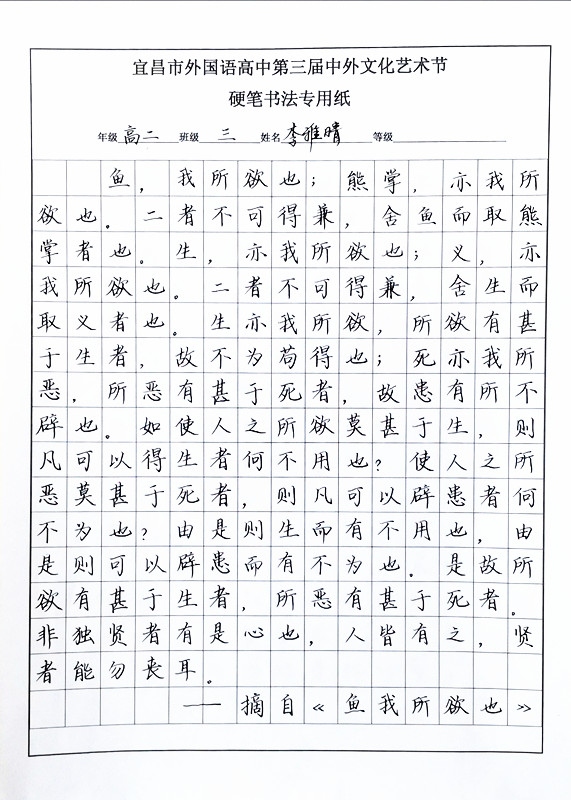 宜昌市外国语高中第三届中外文化艺术节
硬笔书法专用纸
年级 高二 班级 三 姓名 李雅晴 等级
鱼，我所欲也；熊掌，亦我所
欲也。二者不可得兼，舍鱼而取熊
掌者也。生，亦我所欲也；义，亦
我所欲也。二者不可得兼，舍生而
取义者也。生亦我所欲，所欲有甚
于生者，故不为苟得也；死亦我所
恶，所恶有甚于死者，故患有所不
辟也。如使人之所欲莫甚于生，则
凡可以得生者何不用也？使人之所
恶莫甚于死者，则凡可以辟患者何
不为也？由是则生而有不用也，由
是则可以辟患而有不为也。是故所
欲有甚于生者，所恶有甚于死者。
非独贤者有是心也，人皆有之，贤
者能勿丧耳。
——摘自《鱼我所欲也》